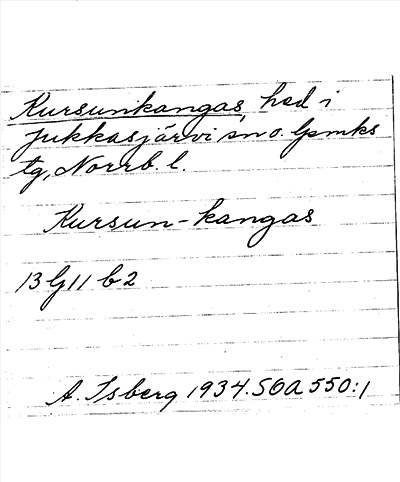 Kursunkangas, hed i
Jukkasjärvi sn o. lpmks
tg, Norrb. l.
Kursun-kangas
13 G 11 b 2
A. Isberg 1934. SOA 550:1